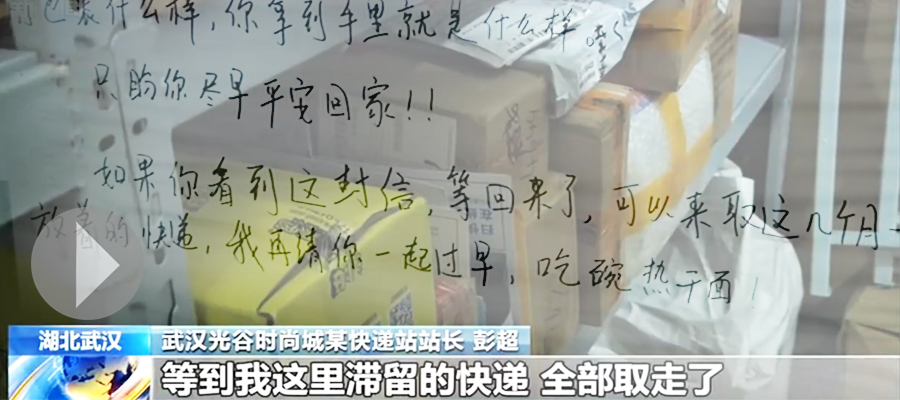 前包装什么样，你拿到手里就是什么样。
只盼你尽早平安回家！！
如果你看到这封信，等回来了，可以来取这几个月
放着的快递，我再请你一起过早，吃碗热干面！
湖北武汉
武汉光谷时尚城某快递站站长 彭超
等到我这里滞留的快递 全部取走了